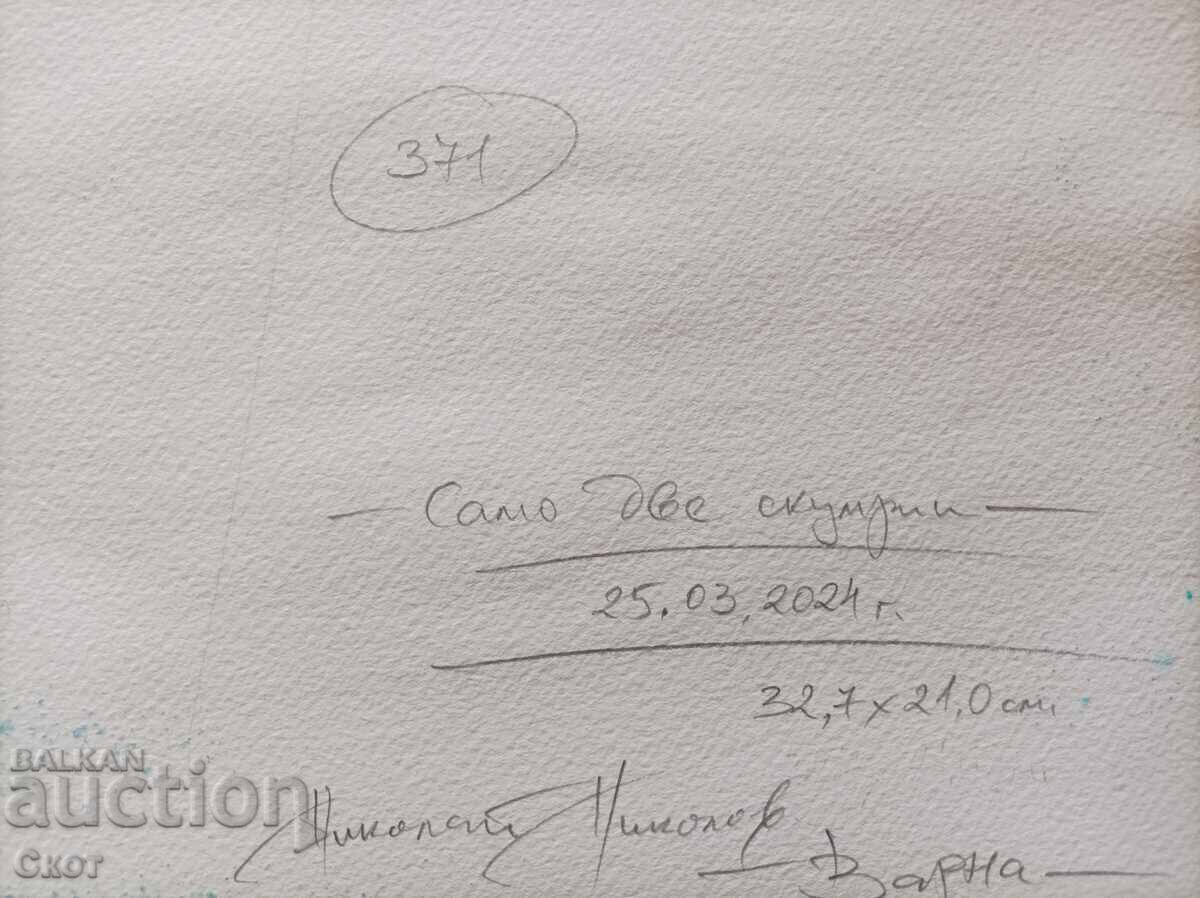 371
— Само две скумрии —
25.03.2024 г.
32,7 x 21,0 см.
Николай Николов
— Варна —
BALKAN
auction
Скот